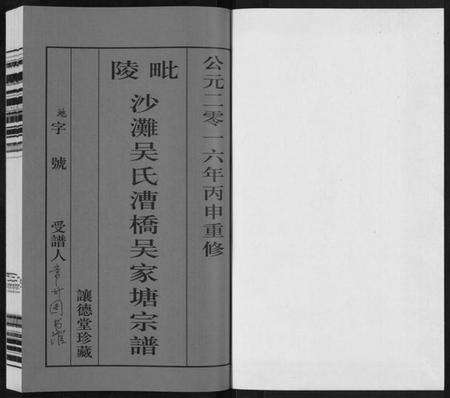 公元二零一六年丙申重修
毗陵
沙灘吴氏漕橋吴家塘宗譜
讓德堂珍藏
字號
受譜人